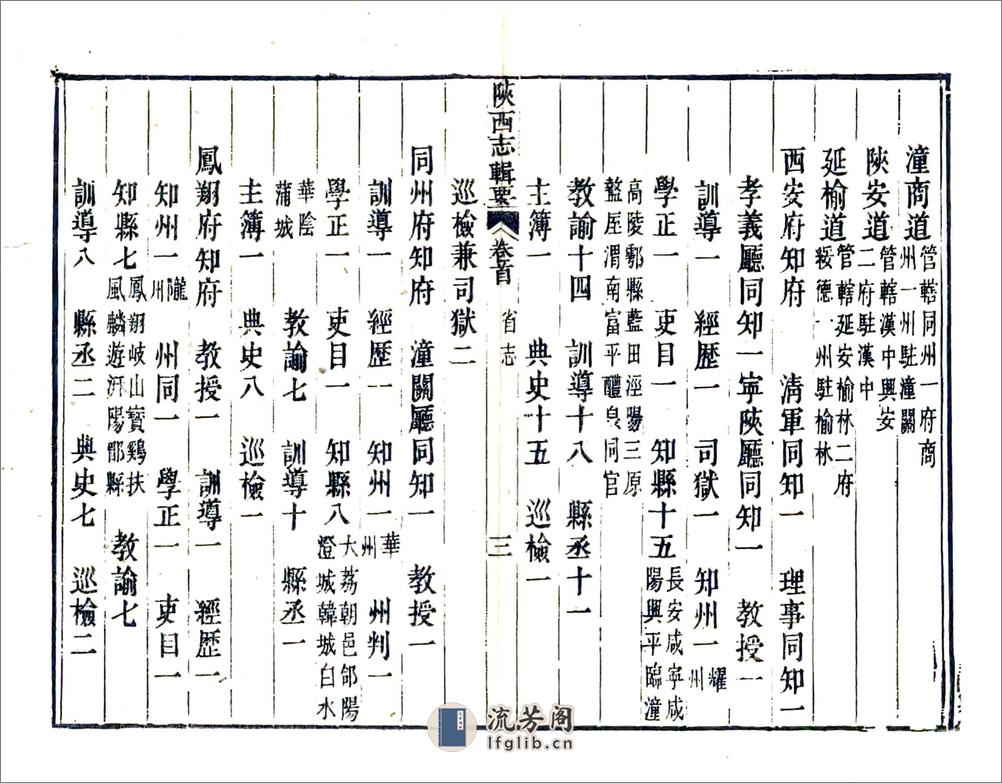 潼商道管轄同州一府商州一州駐潼關
陝安道管轄漢中興安二府駐漢中
延榆道管轄延安榆林二府綏德一州駐榆林
西安府知府 淸軍同知一 理事同知一
孝義廳同知一寧陝廳同知一 教授一
訓導一 經歷一 司獄一 知州一耀州
學正一 吏目一 知縣十五長安咸寧咸陽興平臨潼
高陵鄠縣藍田涇陽三原盩厔渭南富平醴泉同官
教諭十四 訓導十八 縣丞十一
主簿一 典史十五 巡檢一
巡檢兼司獄二
陝西志輯要 卷首 省志 三
同州府知府 潼關廳同知一 教授一
訓導一 經歷一 知州一華州 州判一
學正一 吏目一 知縣八大荔朝邑郃陽澄城韓城白水
華陰蒲城 教諭七 訓導十 縣丞一
主簿一 典史八 巡檢一
鳳翔府知府 教授一 訓導一 經歷一
知州一隴州 州同一 學正一 吏目一
知縣七鳳翔岐山寶鷄扶風麟遊汧陽郿縣 教諭七
訓導八 縣丞二 典史七 巡檢二
流芳阁
lfglib.cn